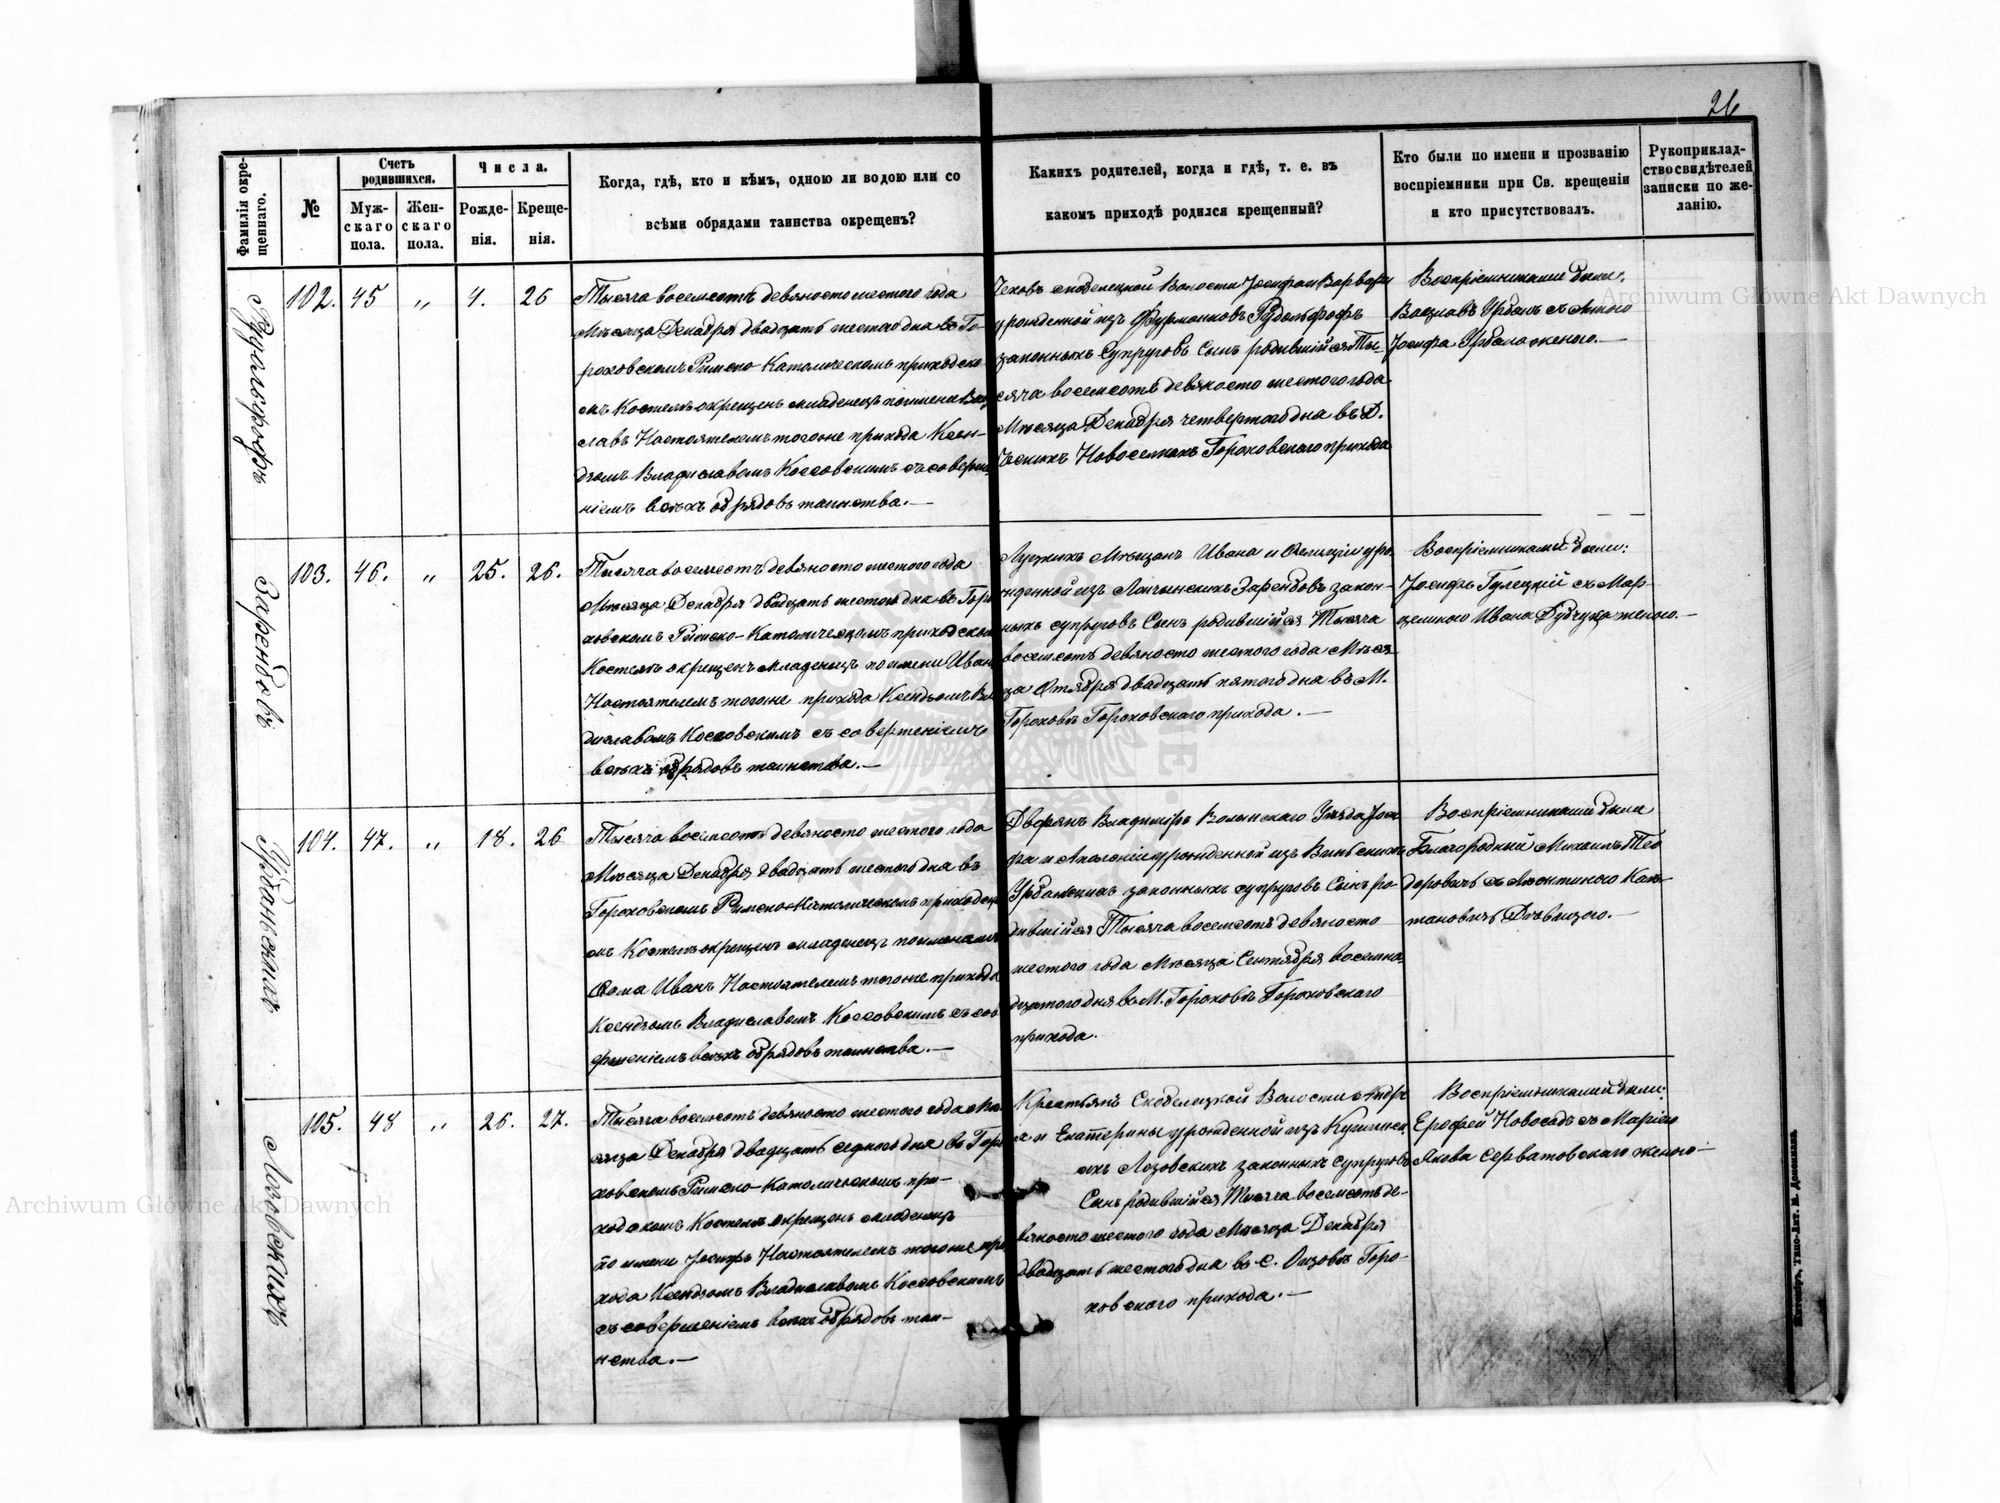 26
Фамилія окре-
щеннаго.
№
Счетъ
родившихся.
Муж-
скаго
пола.
Жен-
скаго
пола.
Числа.
Рожде-
нія.
Креще-
нія.
Когда, гдѣ, кто и кѣмъ, одною ли водою или со
всѣми обрядами таинства окрещенъ?
Какихъ родителей, когда и гдѣ, т. е. въ
какомъ приходѣ родился крещенный?
Кто были по имени и прозванію
воспріемники при Св. крещеніи
и кто присутствовалъ.
Рукоприклад-
ство свидѣтелей
записки по же-
ланію.
Рудольфофъ
102. 45 „ 4. 26
Тысяча восемсотъ девяносто шестого года
Мѣсяца Декабря двадцать шестаго дна въ Го-
роховскомъ Римско-Католическомъ приходско-
мъ Костелѣ окрещенъ младенецъ по имени Вац
славъ Настоятелемъ тогоже прихода Ксен-
дзомъ Владиславомъ Коссовскимъ съ соверше
ніемъ всѣхъ обрядовъ таинства.—
Чеховъ Скобелецкой Волости Іосифа и Варвары
урожденной изъ Фурманковъ Рудольфофъ
законныхъ супруговъ Сынъ родившійся Ты-
сяча восемсотъ девяносто шестого года
Мѣсяца Декабря четвертого дна въ Д.
Чешкихъ Новоселкахъ Гороховскаго прихода
Воспріемниками были:
Вацлавъ Урбанъ съ Анною
Іосифа Урбана женою.—
Зарембовъ
103. 46. „ 25. 26.
Тысяча восемсотъ девяносто шестого года
Мѣсяца Декабря двадцать шестого дна въ Горо
ховскомъ Римско-Католическомъ приходскомъ
Костелѣ окрещенъ младенецъ по имени Иванъ
Настоятелемъ тогоже прихода Ксендзомъ Вла
диславомъ Коссовскимъ съ совершеніемъ
всѣхъ обрядовъ таинства.—
Луцкихъ Мѣщанъ Ивана и Фелиціи уро-
жденной изъ Зарембовъ закон-
ныхъ супруговъ Сынъ родившійся Тысяча
восемсотъ девяносто шестого года Мѣся-
ца Октября двадцать пятого дна въ М.
Гороховѣ Гороховскаго прихода.—
Воспріемниками были:
Іосифъ Гулецкій съ Мар-
целиною Ивана женою.—
Урбанскихъ
104. 47. „ 18. 26
Тысяча восемсотъ девяносто шестого года
Мѣсяца Декабря двадцать шестого дна въ
Гороховскомъ Римско-Католическомъ приходско
мъ Костелѣ окрещенъ младенецъ по именамъ
Фома Иванъ Настоятелемъ тогоже прихода
Ксендзомъ Владиславомъ Коссовскимъ съ сов
ершеніемъ всѣхъ обрядовъ таинства.—
Дворянъ Владиміръ Волынскаго Уѣзда Іоси
фа и Аполоніи урожденной изъ
Урбанскихъ законныхъ супруговъ Сынъ ро-
дившійся Тысяча восемсотъ девяносто
шестого года Мѣсяца Сентября восемна
дцатого дня въ М. Гороховѣ Гороховскаго
прихода.
Воспріемниками были
Благородный Михаилъ Тео
доровичъ съ Леонтиною
Лозовскихъ
105. 48 „ 26. 27.
Тысяча восемсотъ девяносто шестого года Мѣ-
сяца Декабря двадцать седмого дна въ Горо
ховскомъ Римско-Католическомъ при-
ходскомъ Костелѣ окрещенъ младенецъ
по имени Іосифъ Настоятелемъ тогоже при
хода Ксендзомъ Владиславомъ Коссовскимъ
съ совершеніемъ всѣхъ обрядовъ таи-
нства.—
Крестьянъ Скобелецкой Волости Андре
я и Екатерины урожденной изъ
ихъ Лозовскихъ законныхъ супруговъ
Сынъ родившійся Тысяча восемсотъ де-
вяносто шестого года Мѣсяца Декабря
двадцать шестого дна въ С. Гумовѣ Горо-
ховскаго прихода.—
Воспріемниками были:
Ерофей Новосадъ съ Маріею
Якова Серватовскаго женою—
Archiwum Główne Akt Dawnych
Archiwum Główne Akt Dawnych